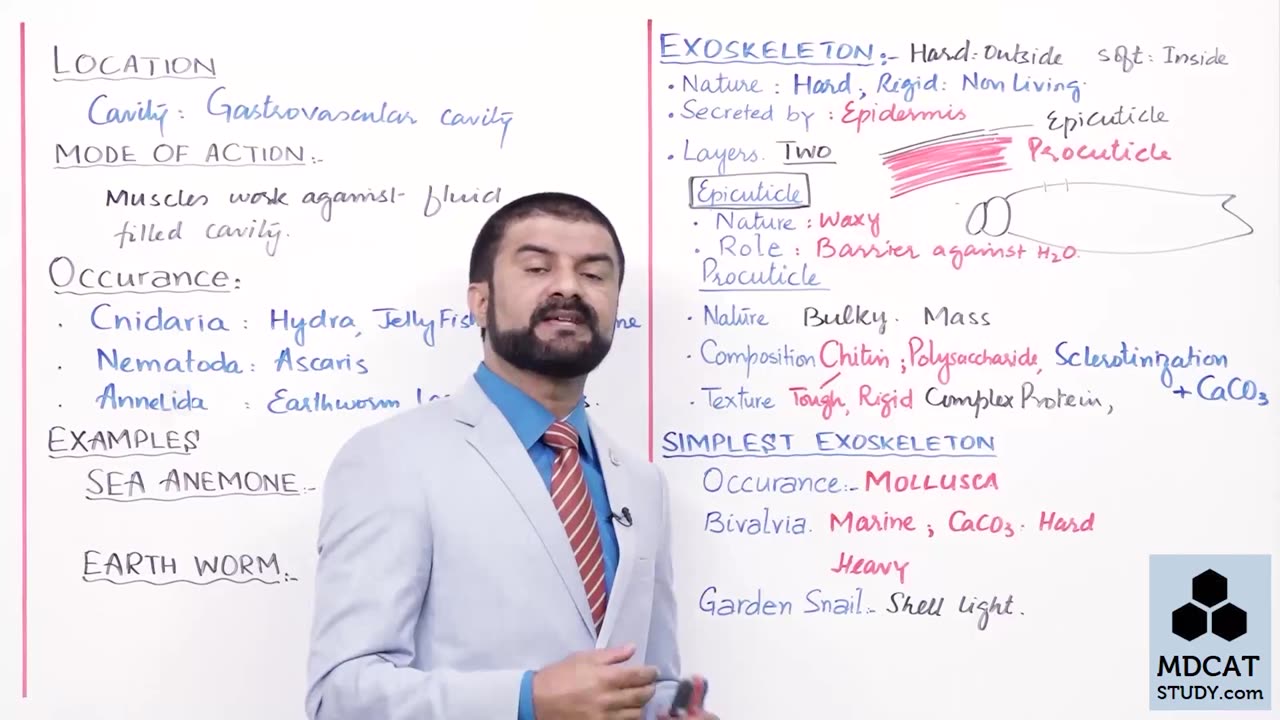 LOCATION
Cavity: Gastrovascular cavity
MODE OF ACTION:-
Muscles work against fluid
filled cavity.
Occurance:
. Cnidaria : Hydra, Jelly Fis
. Nematoda: Ascaris
. Annelida : Earthworm
EXAMPLES
SEA ANEMONE:-
EARTH WORM:-
EXOSKELETON:- Hard: Outside Soft: Inside
• Nature : Hard, Rigid: Non Living.
• Secreted by : Epidermis
Epicuticle
• Layers. Two
Procuticle
Epicuticle
• Nature : Waxy
• Role : Barrier against H2O.
Procuticle
• Nature Bulky. Mass
• Composition Chitin ; Polysaccharide, Sclerotinization
+ CaCO3
• Texture Tough, Rigid Complex Protein,
SIMPLEST EXOSKELETON
Occurance:- MOLLUSCA
Bivalvia. Marine ; CaCO3. Hard
Heavy
Garden Snail:- Shell light.
MDCAT
STUDY.com